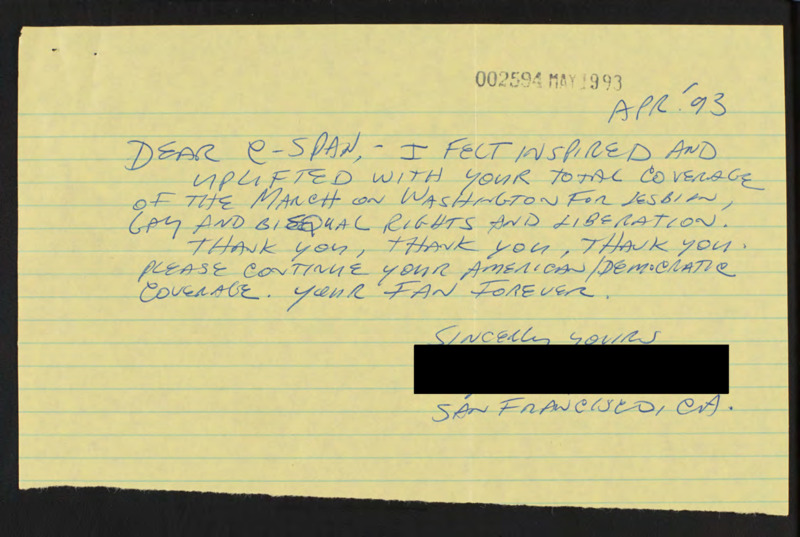 002594 MAY 1993
APR. '93
DEAR C-SPAN, - I FELT INSPIRED AND
UPLIFTED WITH YOUR TOTAL COVERAGE
OF THE MARCH ON WASHINGTON FOR LESBIAN,
GAY AND BISEQUAL RIGHTS AND LIBERATION.
THANK YOU, THANK YOU, THANK YOU.
PLEASE CONTINUE YOUR AMERICAN/DEMOCRATIC
COVERAGE. YOUR FAN FOREVER.
SINCELLY YOURS
SAN FRANCISCO, CA.